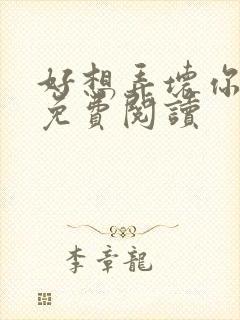 好想弄壞你
免費閱讀
李章龍